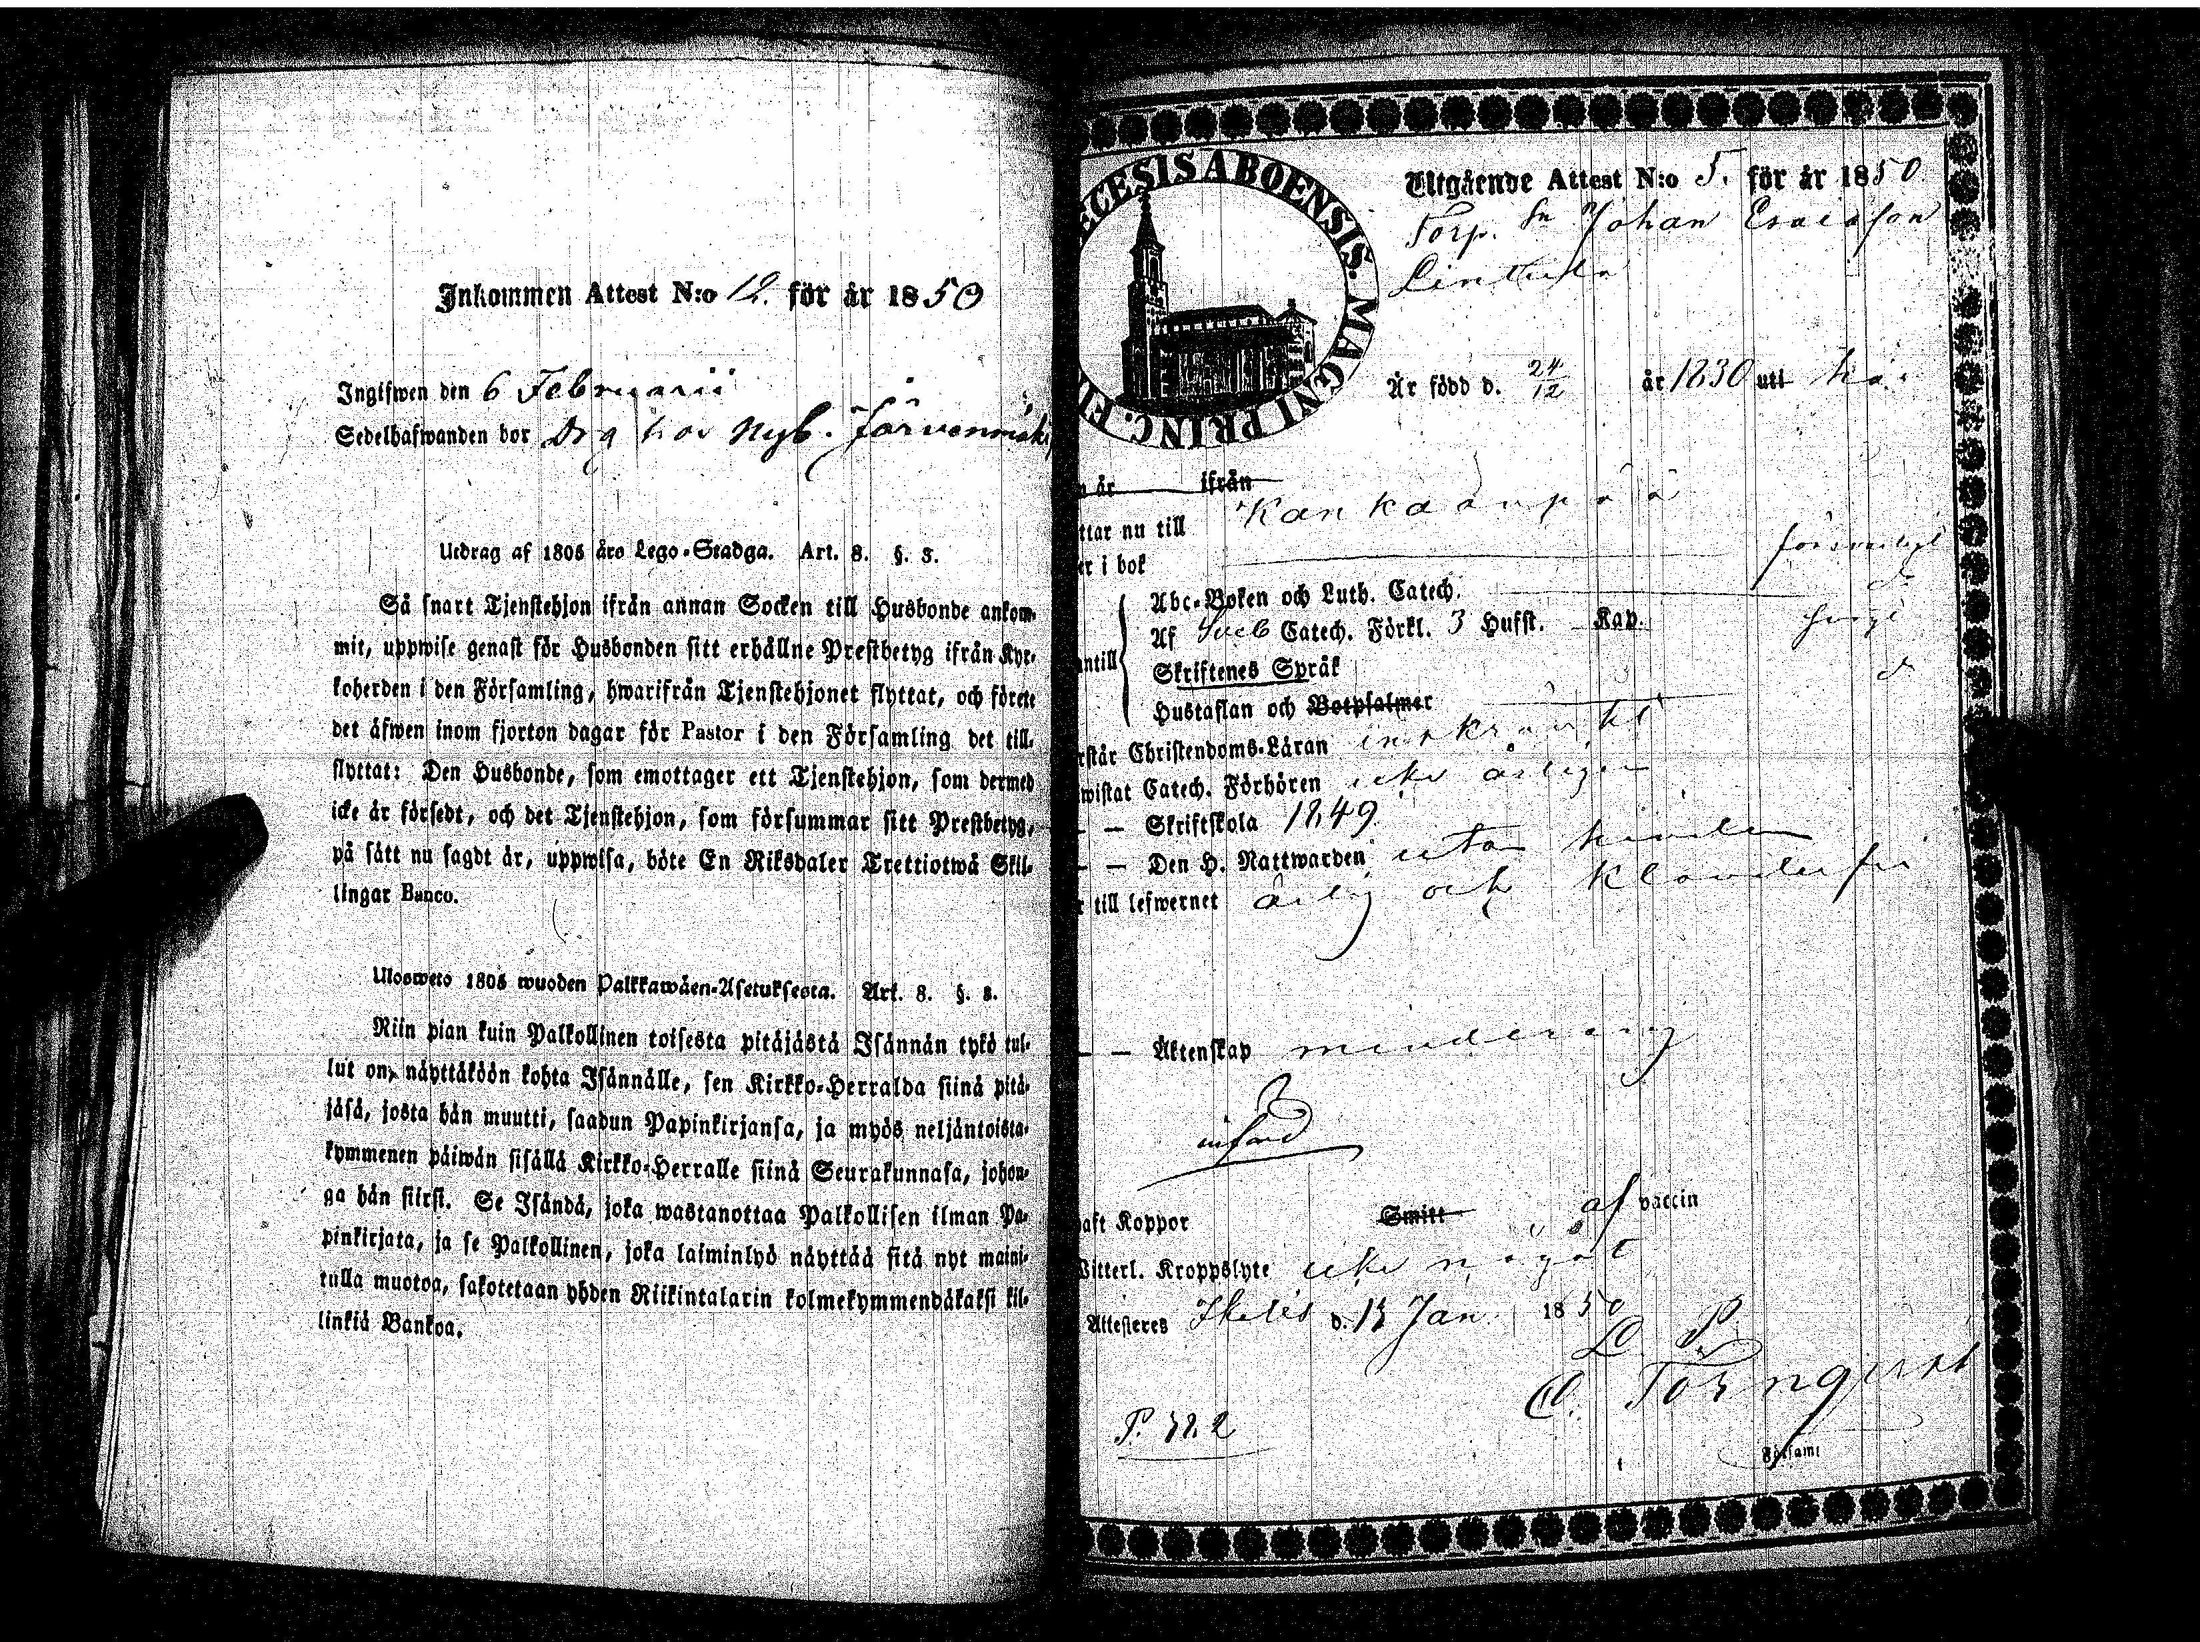 Inkommen Attest N:o 12. för år 1850
Ingifwen den 6 Februarii
Sedelhafwanden bor Drg hos Nyb. Järvenmäki
Utdrag af 1805 års Lego-Stadga. Art. 8. §. 3.
Så snart Tjenstehjon ifrån annan Socken till Husbonde ankom-
mit, uppwise genast för Husbonden sitt erhållne Prestbetyg ifrån Kyr-
koherden i den Församling, hwarifrån Tjenstehjonet flyttat, och förete
det äfwen inom fjorton dagar för Pastor i den Församling det till-
flyttat: Den Husbonde, som emottager ett Tjenstehjon, som dermed
icke är försedt, och det Tjenstehjon, som försummar sitt Prestbetyg,
på sätt nu sagdt är, uppwisa, böte En Riksdaler Trettiotwå Skil-
lingar Banco.
Ulosweto 1805 wuoden Palkkawäen-Asetuksesta. Art. 8. §. 3.
Niin pian kuin Palkollinen toisesta pitäjästä Isännän tykö tul-
lut on, näyttäköön kohta Isännälle, sen Kirkko-Herralda siinä pitä-
jäsä, josta hän muutti, saadun Papinkirjansa, ja myös neljäntoista-
kymmenen päiwän sisällä Kirkko-Herralle siinä Seurakunnasa, johon-
ga hän siirsi. Se Isändä, joka wastanottaa Palkollisen ilman Pa-
pinkirjata, ja se Palkollinen, joka laiminlyö näyttää sitä nyt maini-
tulla muotoa, sakotetaan yhden Riikintalarin kolmekymmendäkaksi kil-
linkiä Bankoa.
ECESIS ABOENSIS. MAGNI PRINC. FI
Utgående Attest N:o 5. för år 1850
Torp. Sn Johan Esaiasson
Lintula
Är född d. 24/12 år 1830 uti här
n år ifrån
ttar nu till Kankaanpää
er i bok försvarligt
Abc-Boken och Luth. Catech. do
Af Sveb Catech. Förkl. 3 Hufst. Kap.
antill Skriftenes Språk
Hustaflan och Botpsalmer
rstår Christendoms-Läran inskränkt
wistat Catech. Förhören icke årligen
— — Skriftskola 1849
— — Den H. Nattwarden utan hinder
r till lefwernet ärlig och klanderfri
— — Äktenskap minderårig
haft Koppor Smitt af vaccin
Witterl. Kroppslyte icke något
Attesteras Ikalis d. 13 Jan 1850
C. Törnqvist
Församl